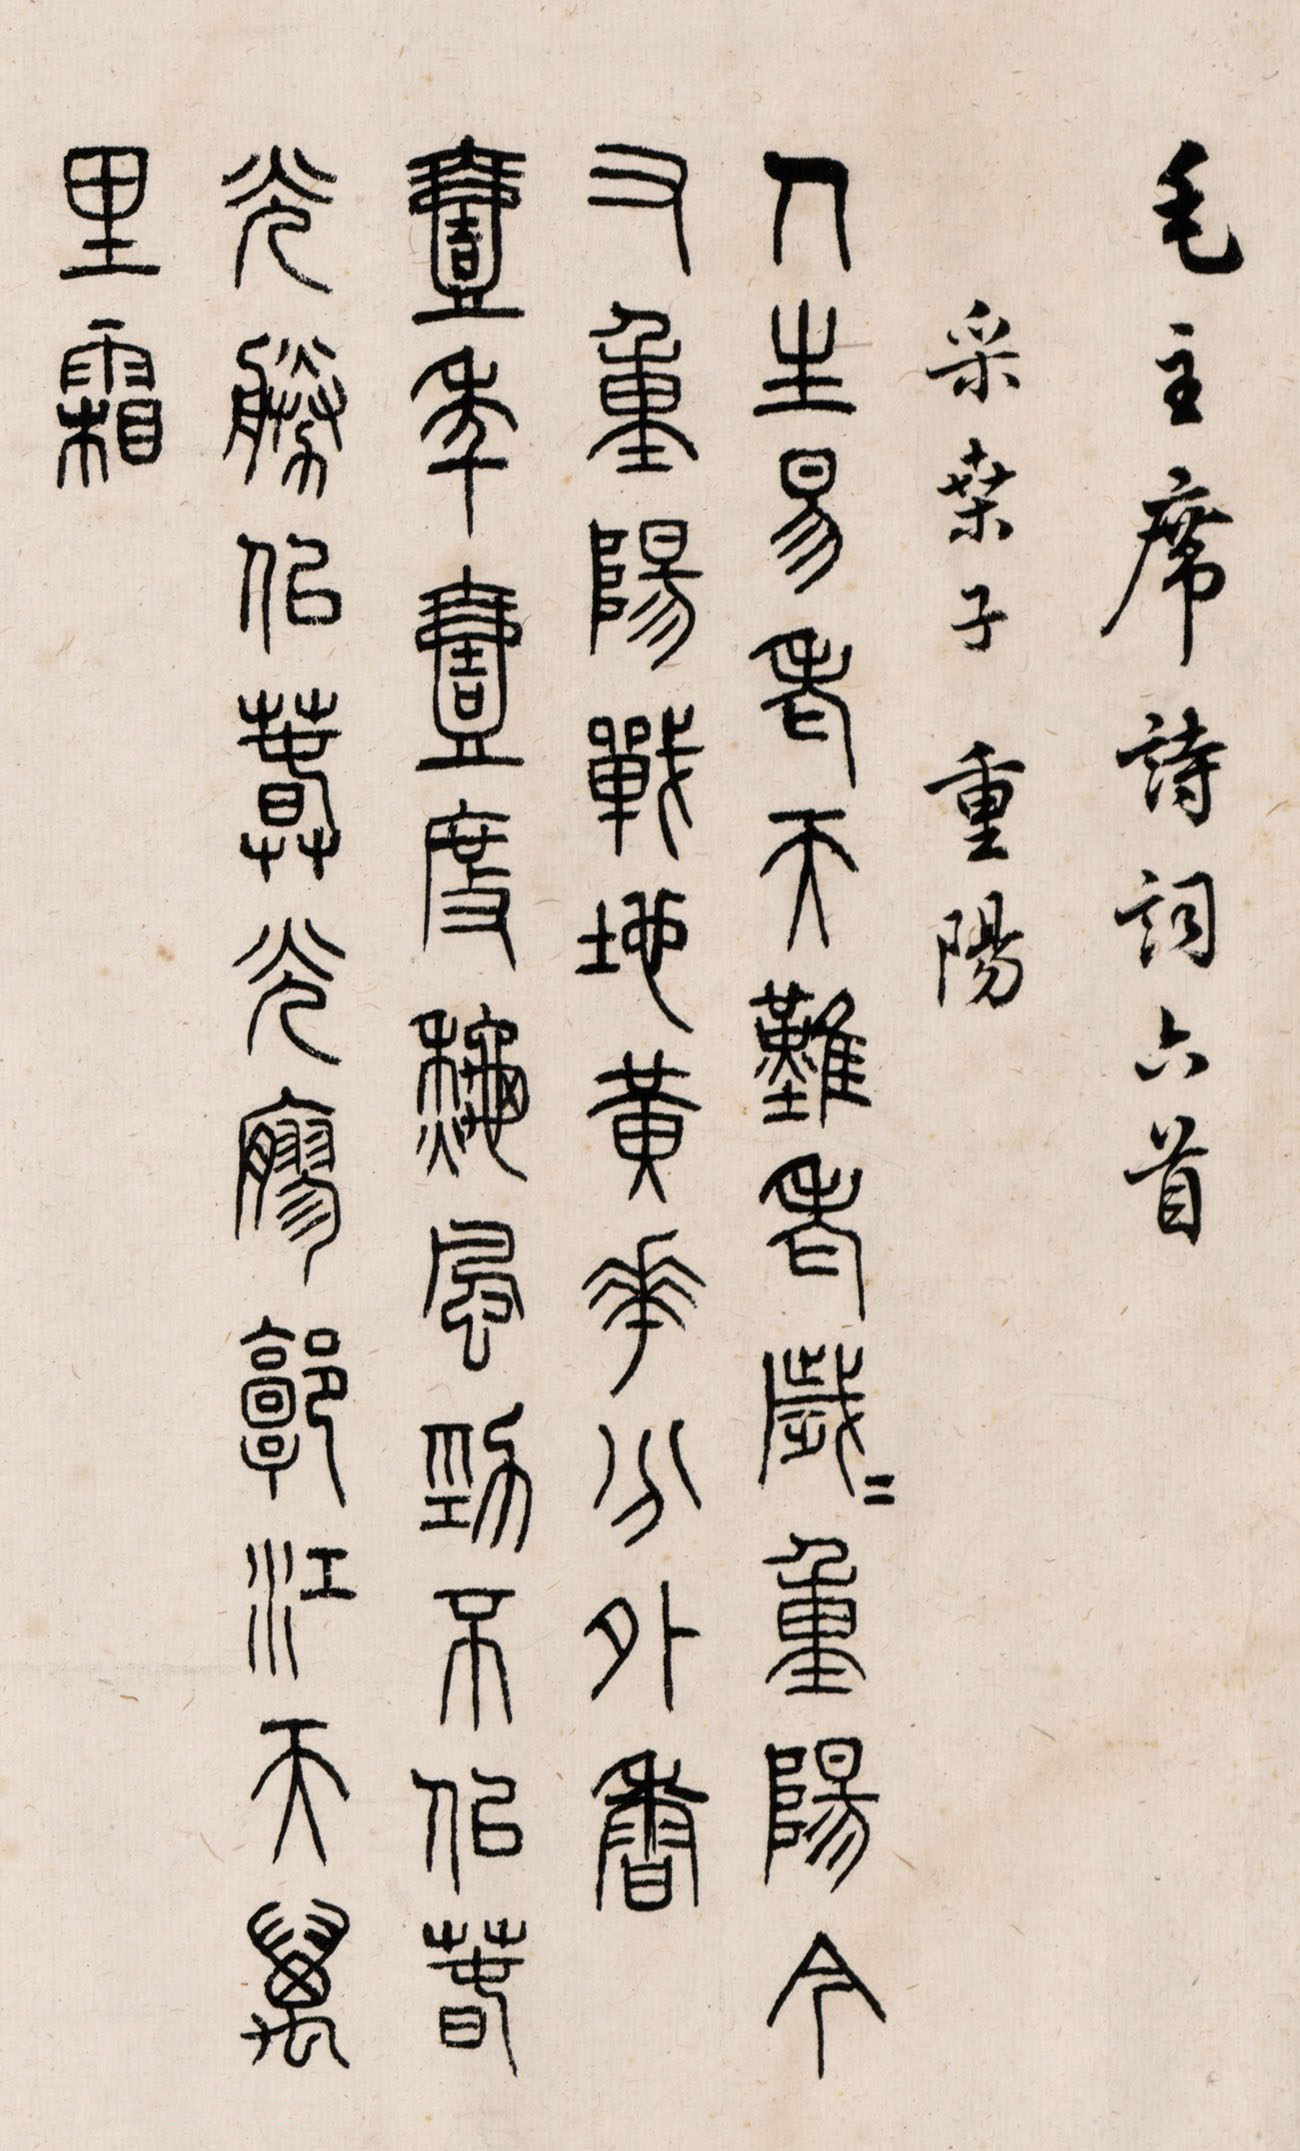 毛主席詩詞六首
采桒子 重陽
人生易老天難老歲=重陽今
又重陽戰地黃華分外香
壹年壹度秋風勁不似春
光勝似春光廖郭江天萬
里霜